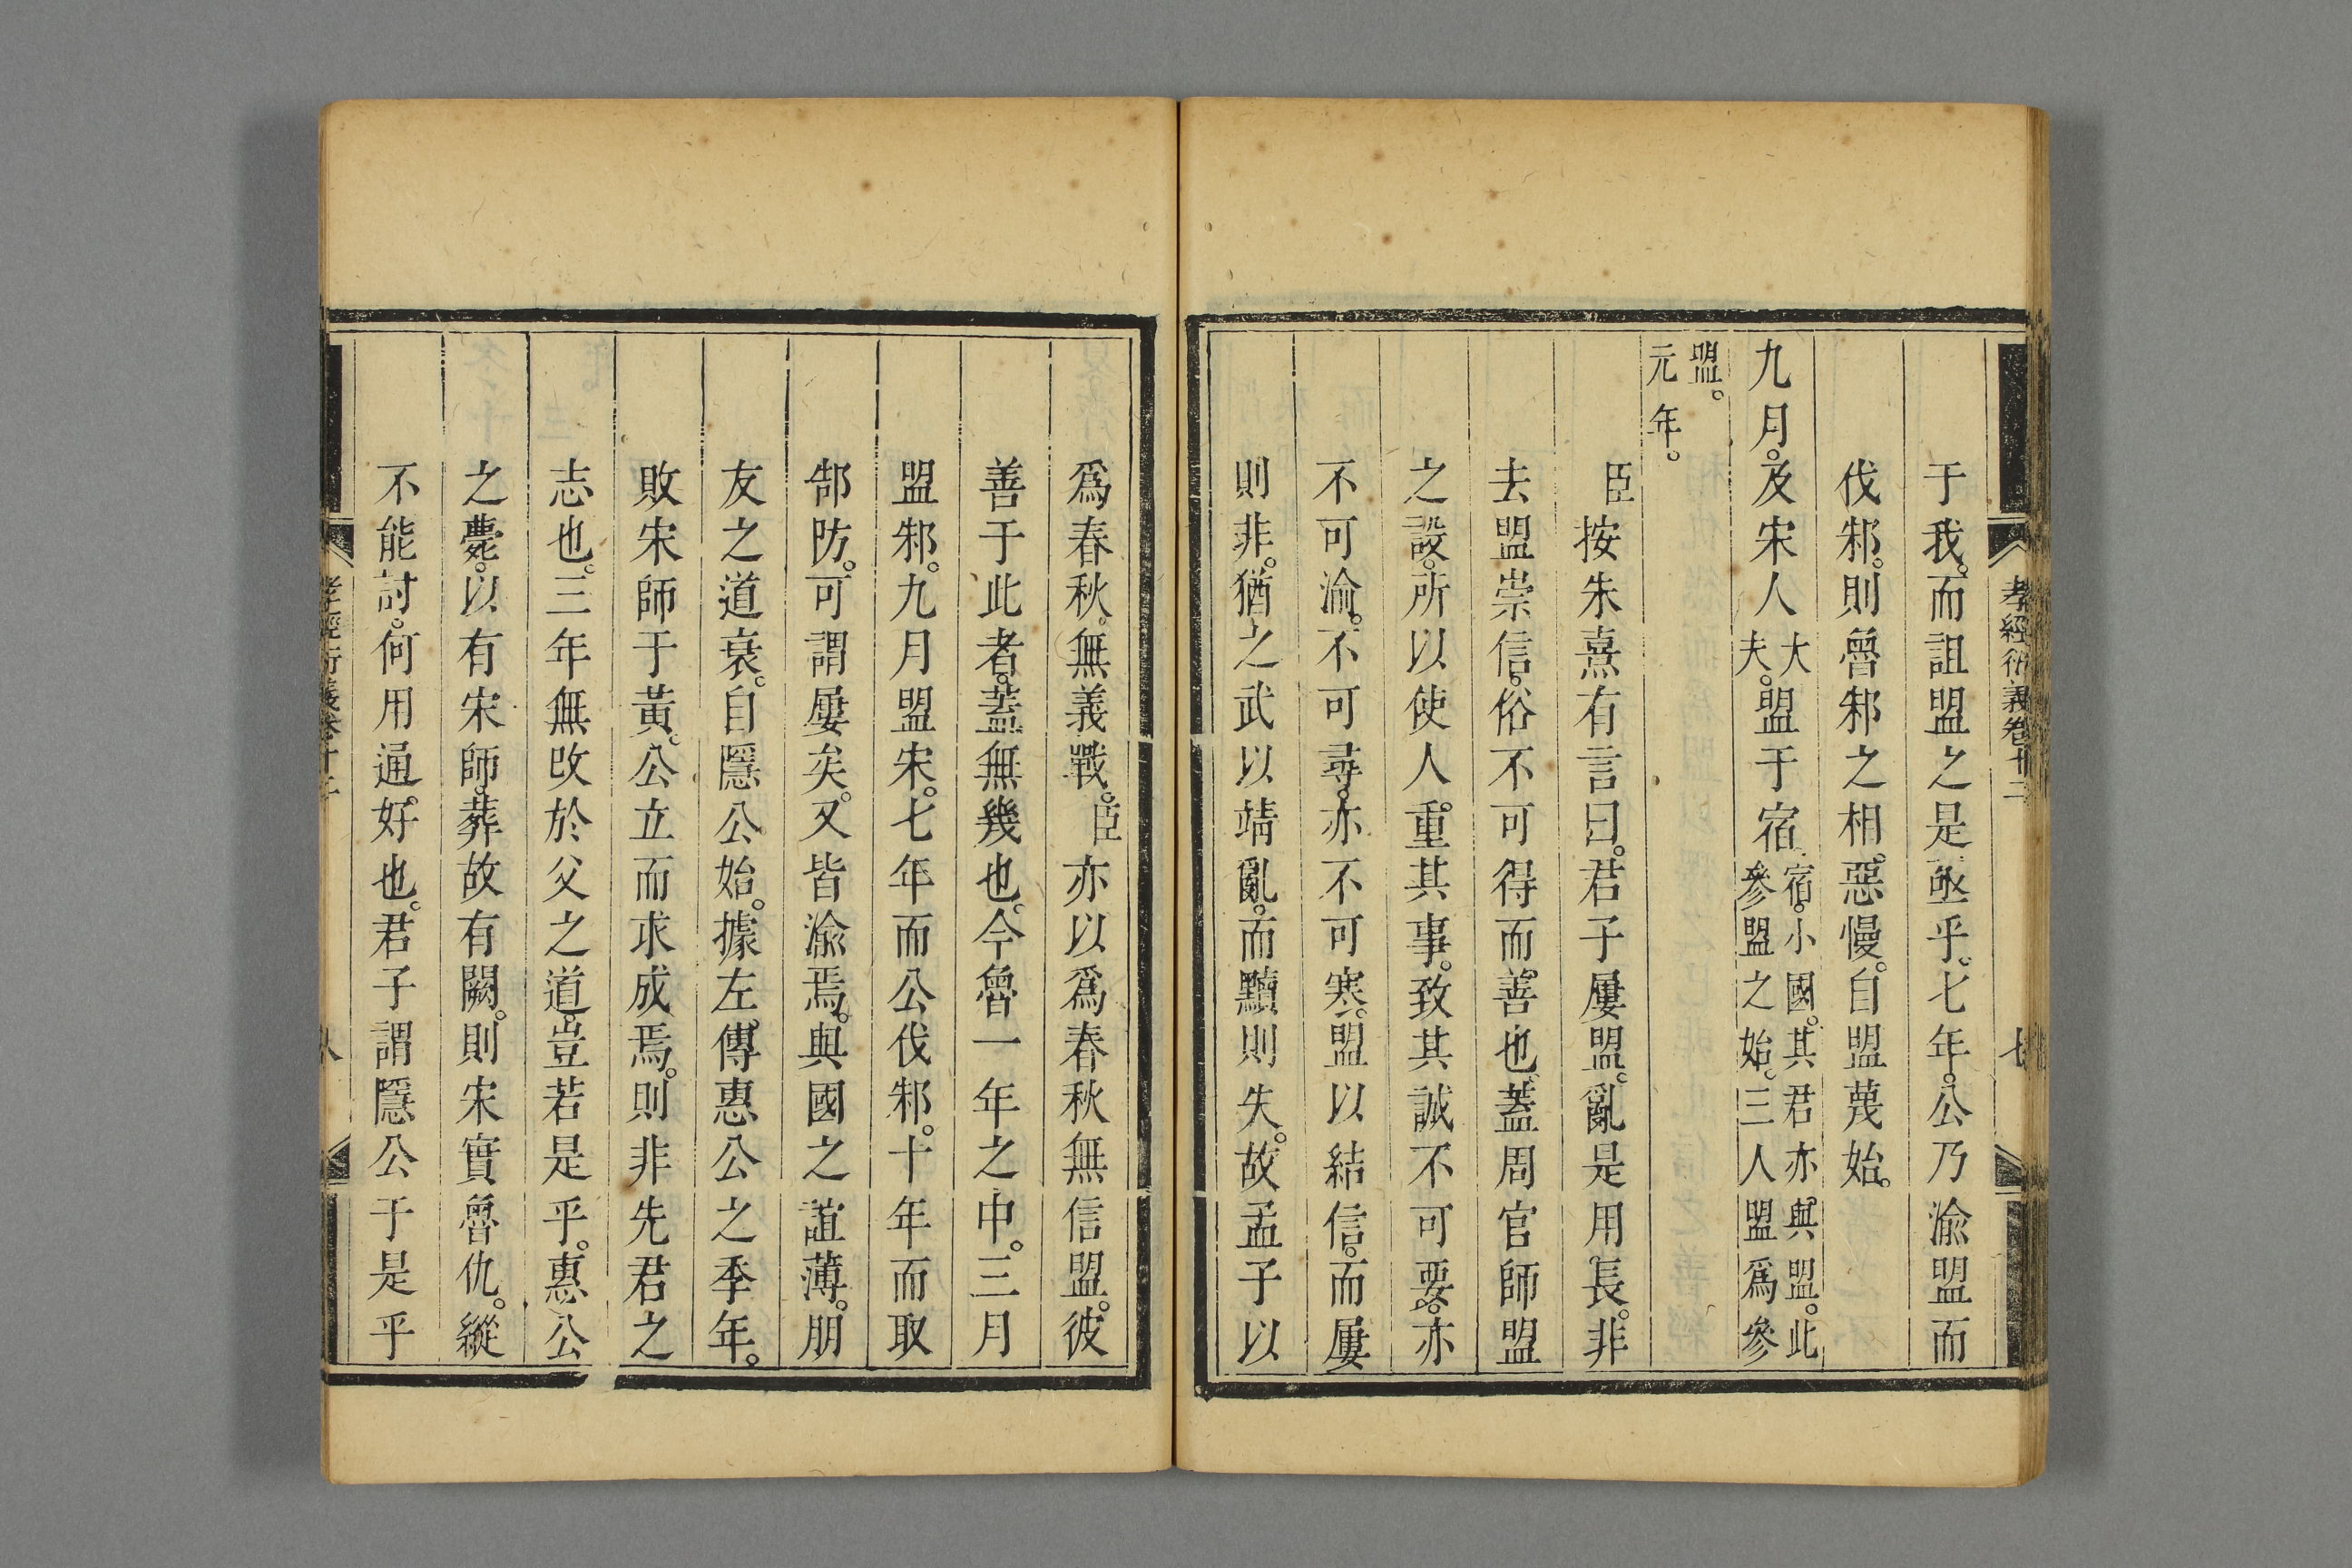 孝經衍義卷十二
七
于我。而詛盟之是亟乎。七年。公乃渝盟而
伐邾。則魯邾之相惡慢。自盟蔑始。
九月。及宋人大夫。盟于宿。宿。小國。其君亦與盟。此參盟之始。三人盟爲參
盟。元年。
臣按朱熹有言曰。君子屢盟。亂是用長。非
去盟崇信。俗不可得而善也。蓋周官師盟
之設。所以使人重其事。致其誠。不可要。亦
不可渝。不可尋。亦不可寒。盟以結信。而屢
則非。猶之武以靖亂。而黷則失。故孟子以
爲春秋。無義戰。臣亦以爲春秋無信盟。彼
善于此者。蓋無幾也。今魯一年之中。三月
盟邾。九月盟宋。七年而公伐邾。十年而取
郜防。可謂屢矣。又皆渝焉。與國之誼薄。朋
友之道衰。自隱公始。據左傳。惠公之季年。
敗宋師于黃。公立而求成焉。則非先君之
志也。三年無改於父之道。豈若是乎。惠公
之薨。以有宋師。葬故有闕。則宋實魯仇。縱
不能討。何用通好也。君子謂隱公于是乎
孝經衍義卷十二
八